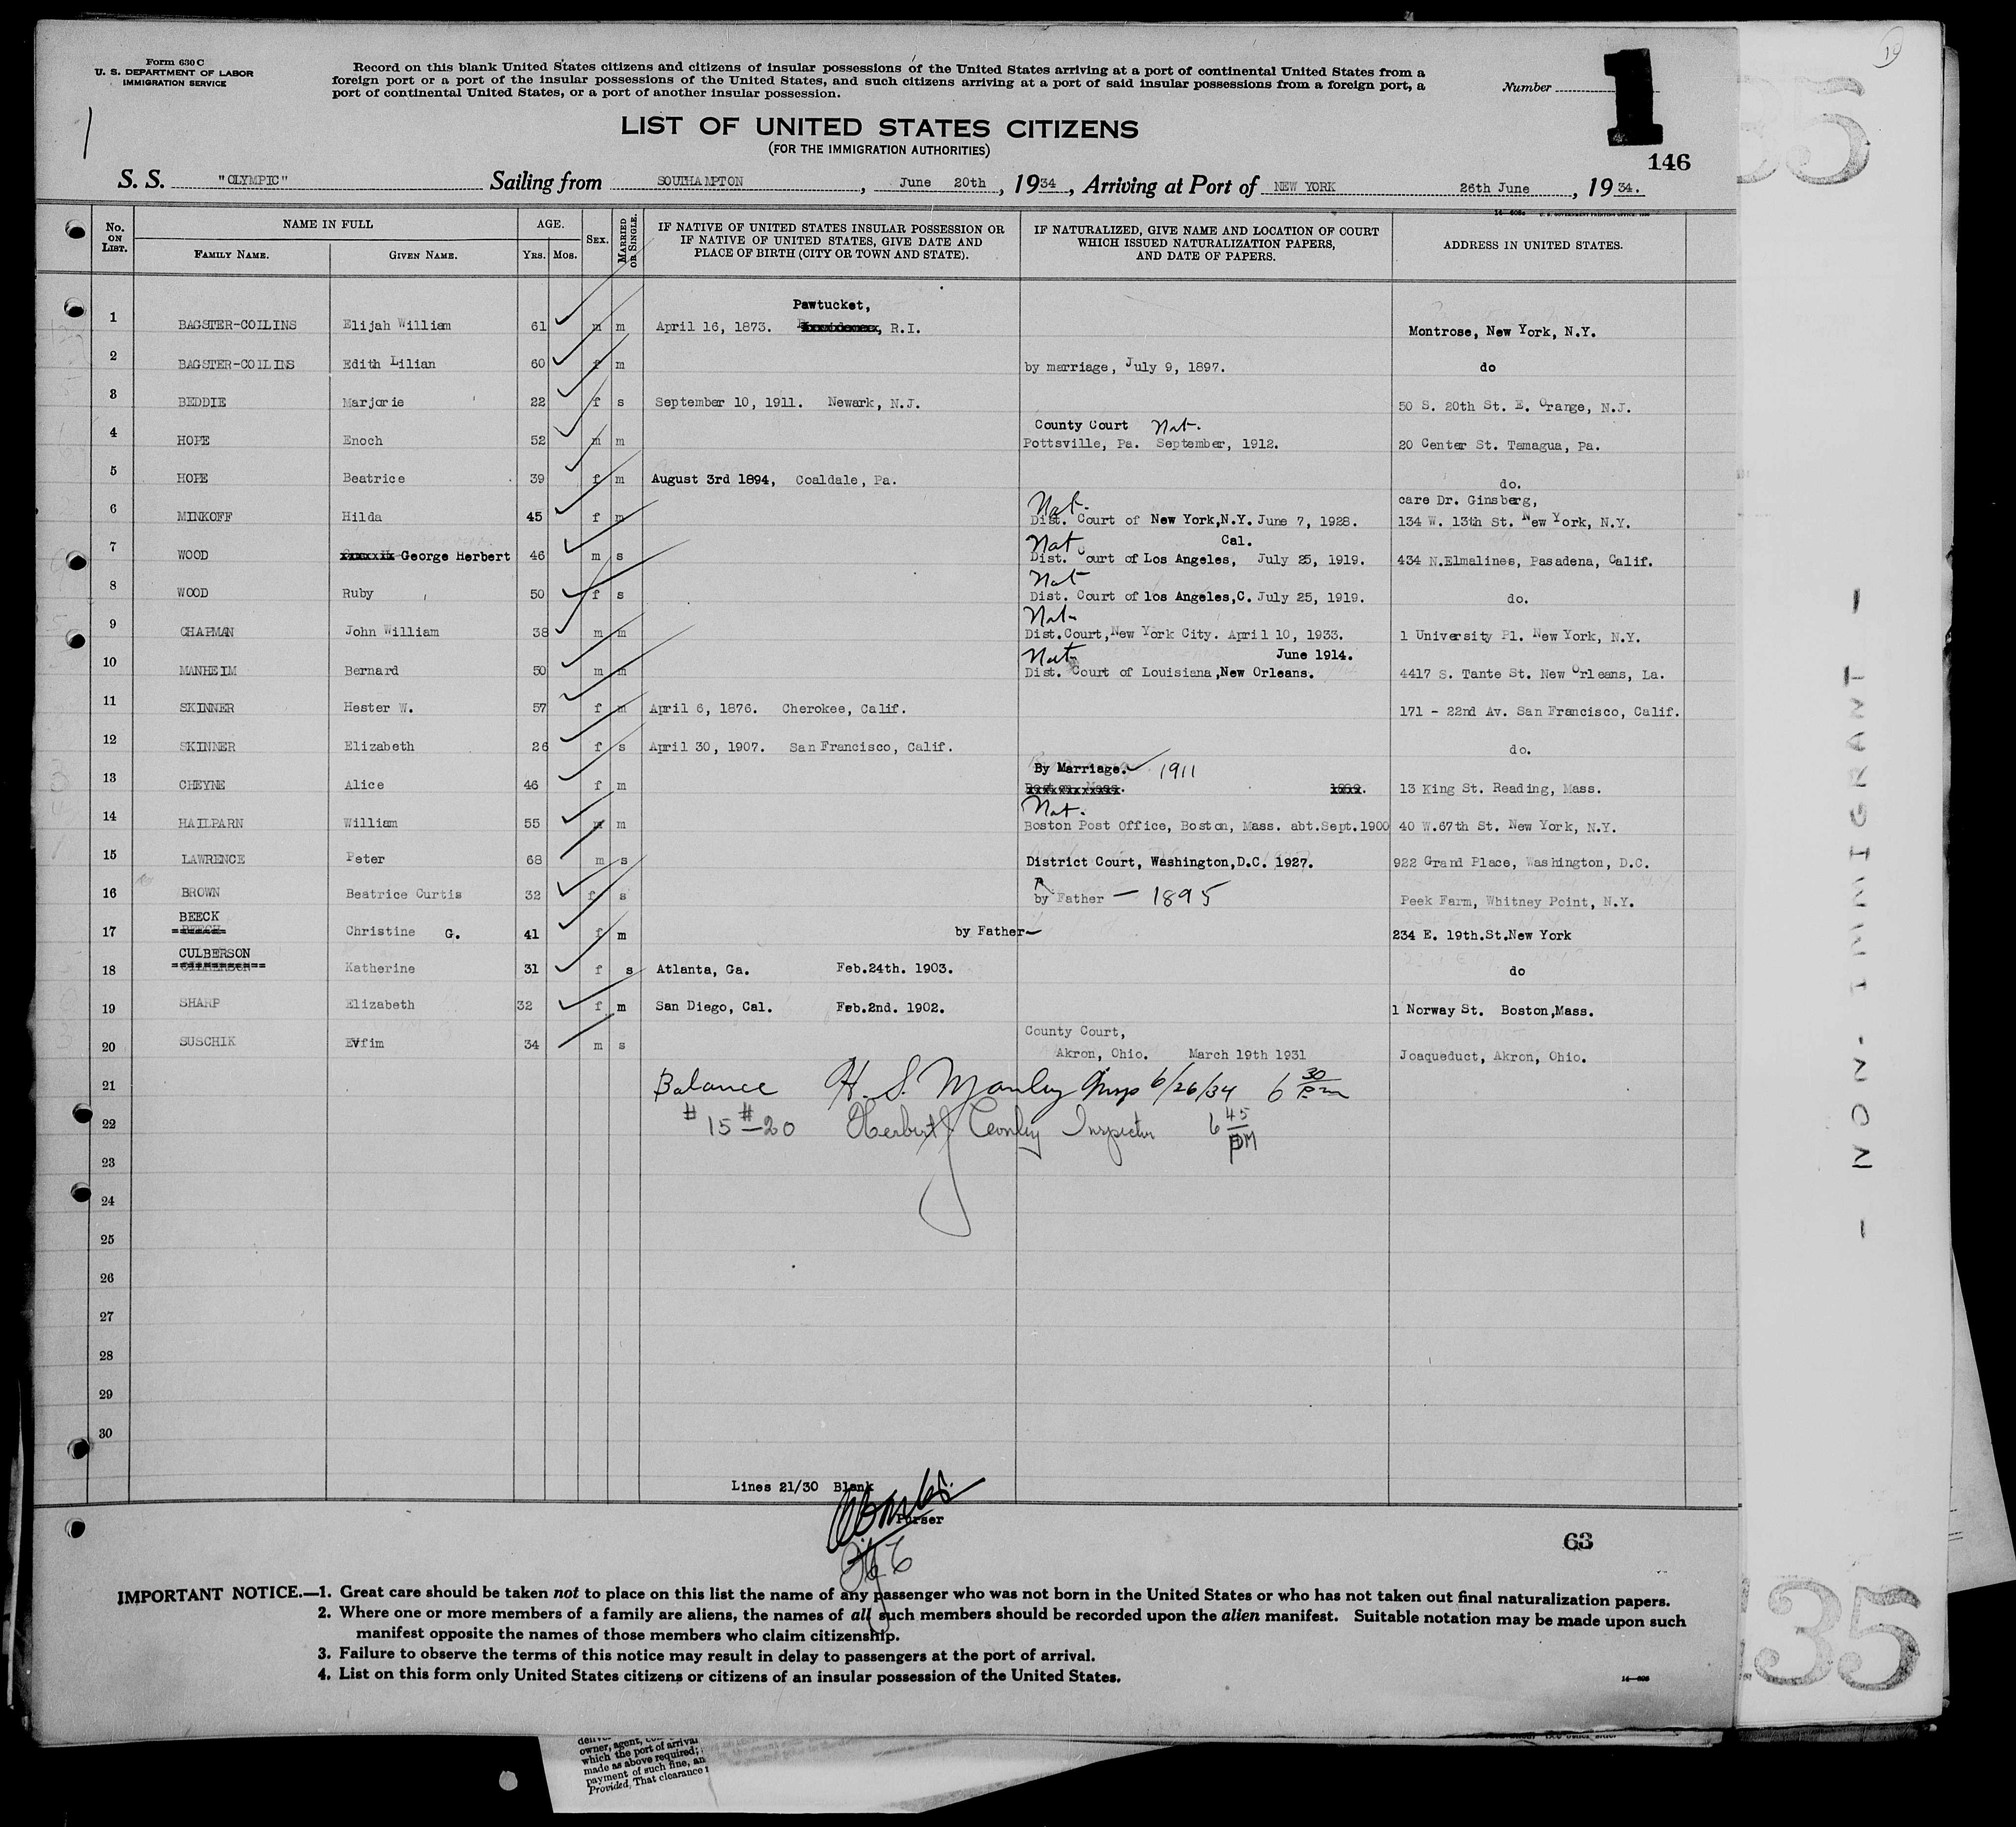 Form 630 C
U. S. DEPARTMENT OF LABOR
IMMIGRATION SERVICE
Record on this blank United States citizens and citizens of insular possessions of the United States arriving at a port of continental United States from a
foreign port or a port of the insular possessions of the United States, and such citizens arriving at a port of said insular possessions from a foreign port, a
port of continental United States, or a port of another insular possession.
Number 1
146
LIST OF UNITED STATES CITIZENS
(FOR THE IMMIGRATION AUTHORITIES)
S. S. "OLYMPIC" Sailing from SOUTHAMPTON, June 20th, 1934, Arriving at Port of NEW YORK 26th June, 1934.
No. ON LIST. NAME IN FULL FAMILY NAME. GIVEN NAME. AGE. YRS. MOS. SEX. MARRIED OR SINGLE. IF NATIVE OF UNITED STATES INSULAR POSSESSION OR IF NATIVE OF UNITED STATES, GIVE DATE AND PLACE OF BIRTH (CITY OR TOWN AND STATE). IF NATURALIZED, GIVE NAME AND LOCATION OF COURT WHICH ISSUED NATURALIZATION PAPERS, AND DATE OF PAPERS. ADDRESS IN UNITED STATES.
Pawtucket,
1 BAGSTER-COLLINS Elijah William 61 m m April 16, 1873. R.I. Montrose, New York, N.Y.
2 BAGSTER-COLLINS Edith Lilian 60 f m by marriage, July 9, 1897. do
3 BEDDIE Marjorie 22 f s September 10, 1911. Newark, N.J. 50 S. 20th St. E. Orange, N.J.
County Court Nat.
4 HOPE Enoch 52 m m Pottsville, Pa. September, 1912. 20 Center St. Tamagua, Pa.
5 HOPE Beatrice 39 f m August 3rd 1894, Coaldale, Pa. do.
Nat. care Dr. Ginsberg,
6 MINKOFF Hilda 45 f m Dist. Court of New York,N.Y. June 7, 1928. 134 W. 13th St. New York, N.Y.
Nat Cal.
7 WOOD George Herbert 46 m s Dist. Court of Los Angeles, July 25, 1919. 434 N.Elmalines, Pasadena, Calif.
Nat
8 WOOD Ruby 50 f s Dist. Court of los Angeles,C. July 25, 1919. do.
Nat.
9 CHAPMAN John William 38 m m Dist.Court,New York City. April 10, 1933. 1 University Pl. New York, N.Y.
Nat. June 1914.
10 MANHEIM Bernard 50 m m Dist. Court of Louisiana,New Orleans. 4417 S. Tante St. New Orleans, La.
11 SKINNER Hester W. 57 f m April 6, 1876. Cherokee, Calif. 171 - 22nd Av. San Francisco, Calif.
12 SKINNER Elizabeth 26 f s April 30, 1907. San Francisco, Calif. do.
By Marriage. 1911
13 CHEYNE Alice 46 f m 13 King St. Reading, Mass.
Nat.
14 HAILPARN William 55 m m Boston Post Office, Boston, Mass. abt.Sept.1900 40 W.67th St. New York, N.Y.
15 LAWRENCE Peter 68 m s District Court, Washington,D.C. 1927. 922 Grand Place, Washington, D.C.
16 BROWN Beatrice Curtis 32 f s by Father — 1895 Peek Farm, Whitney Point, N.Y.
BEECK
17 Christine G. 41 f m by Father 234 E. 19th.St.New York
CULBERSON
18 Katherine 31 f s Atlanta, Ga. Feb.24th. 1903. do
19 SHARP Elizabeth 32 f m San Diego, Cal. Feb.2nd. 1902. 1 Norway St. Boston,Mass.
County Court,
20 SUSCHIK Evfim 34 m s Akron, Ohio. March 19th 1931 Joaqueduct, Akron, Ohio.
21 Balance H. S. Manley Insp 6/26/34 6 30 P.m
22 #15 - #20 Herbert J Conley Inspector 6 45 PM
23
24
25
26
27
28
29
30
Lines 21/30 Blank
Purser
63
IMPORTANT NOTICE.—1. Great care should be taken not to place on this list the name of any passenger who was not born in the United States or who has not taken out final naturalization papers.
2. Where one or more members of a family are aliens, the names of all such members should be recorded upon the alien manifest. Suitable notation may be made upon such
manifest opposite the names of those members who claim citizenship.
3. Failure to observe the terms of this notice may result in delay to passengers at the port of arrival.
4. List on this form only United States citizens or citizens of an insular possession of the United States.
- NON-IMMIGRANT -
35
owner, agent,
which the port of arrival
made as above required;
payment of such fine, an
Provided, That clearance